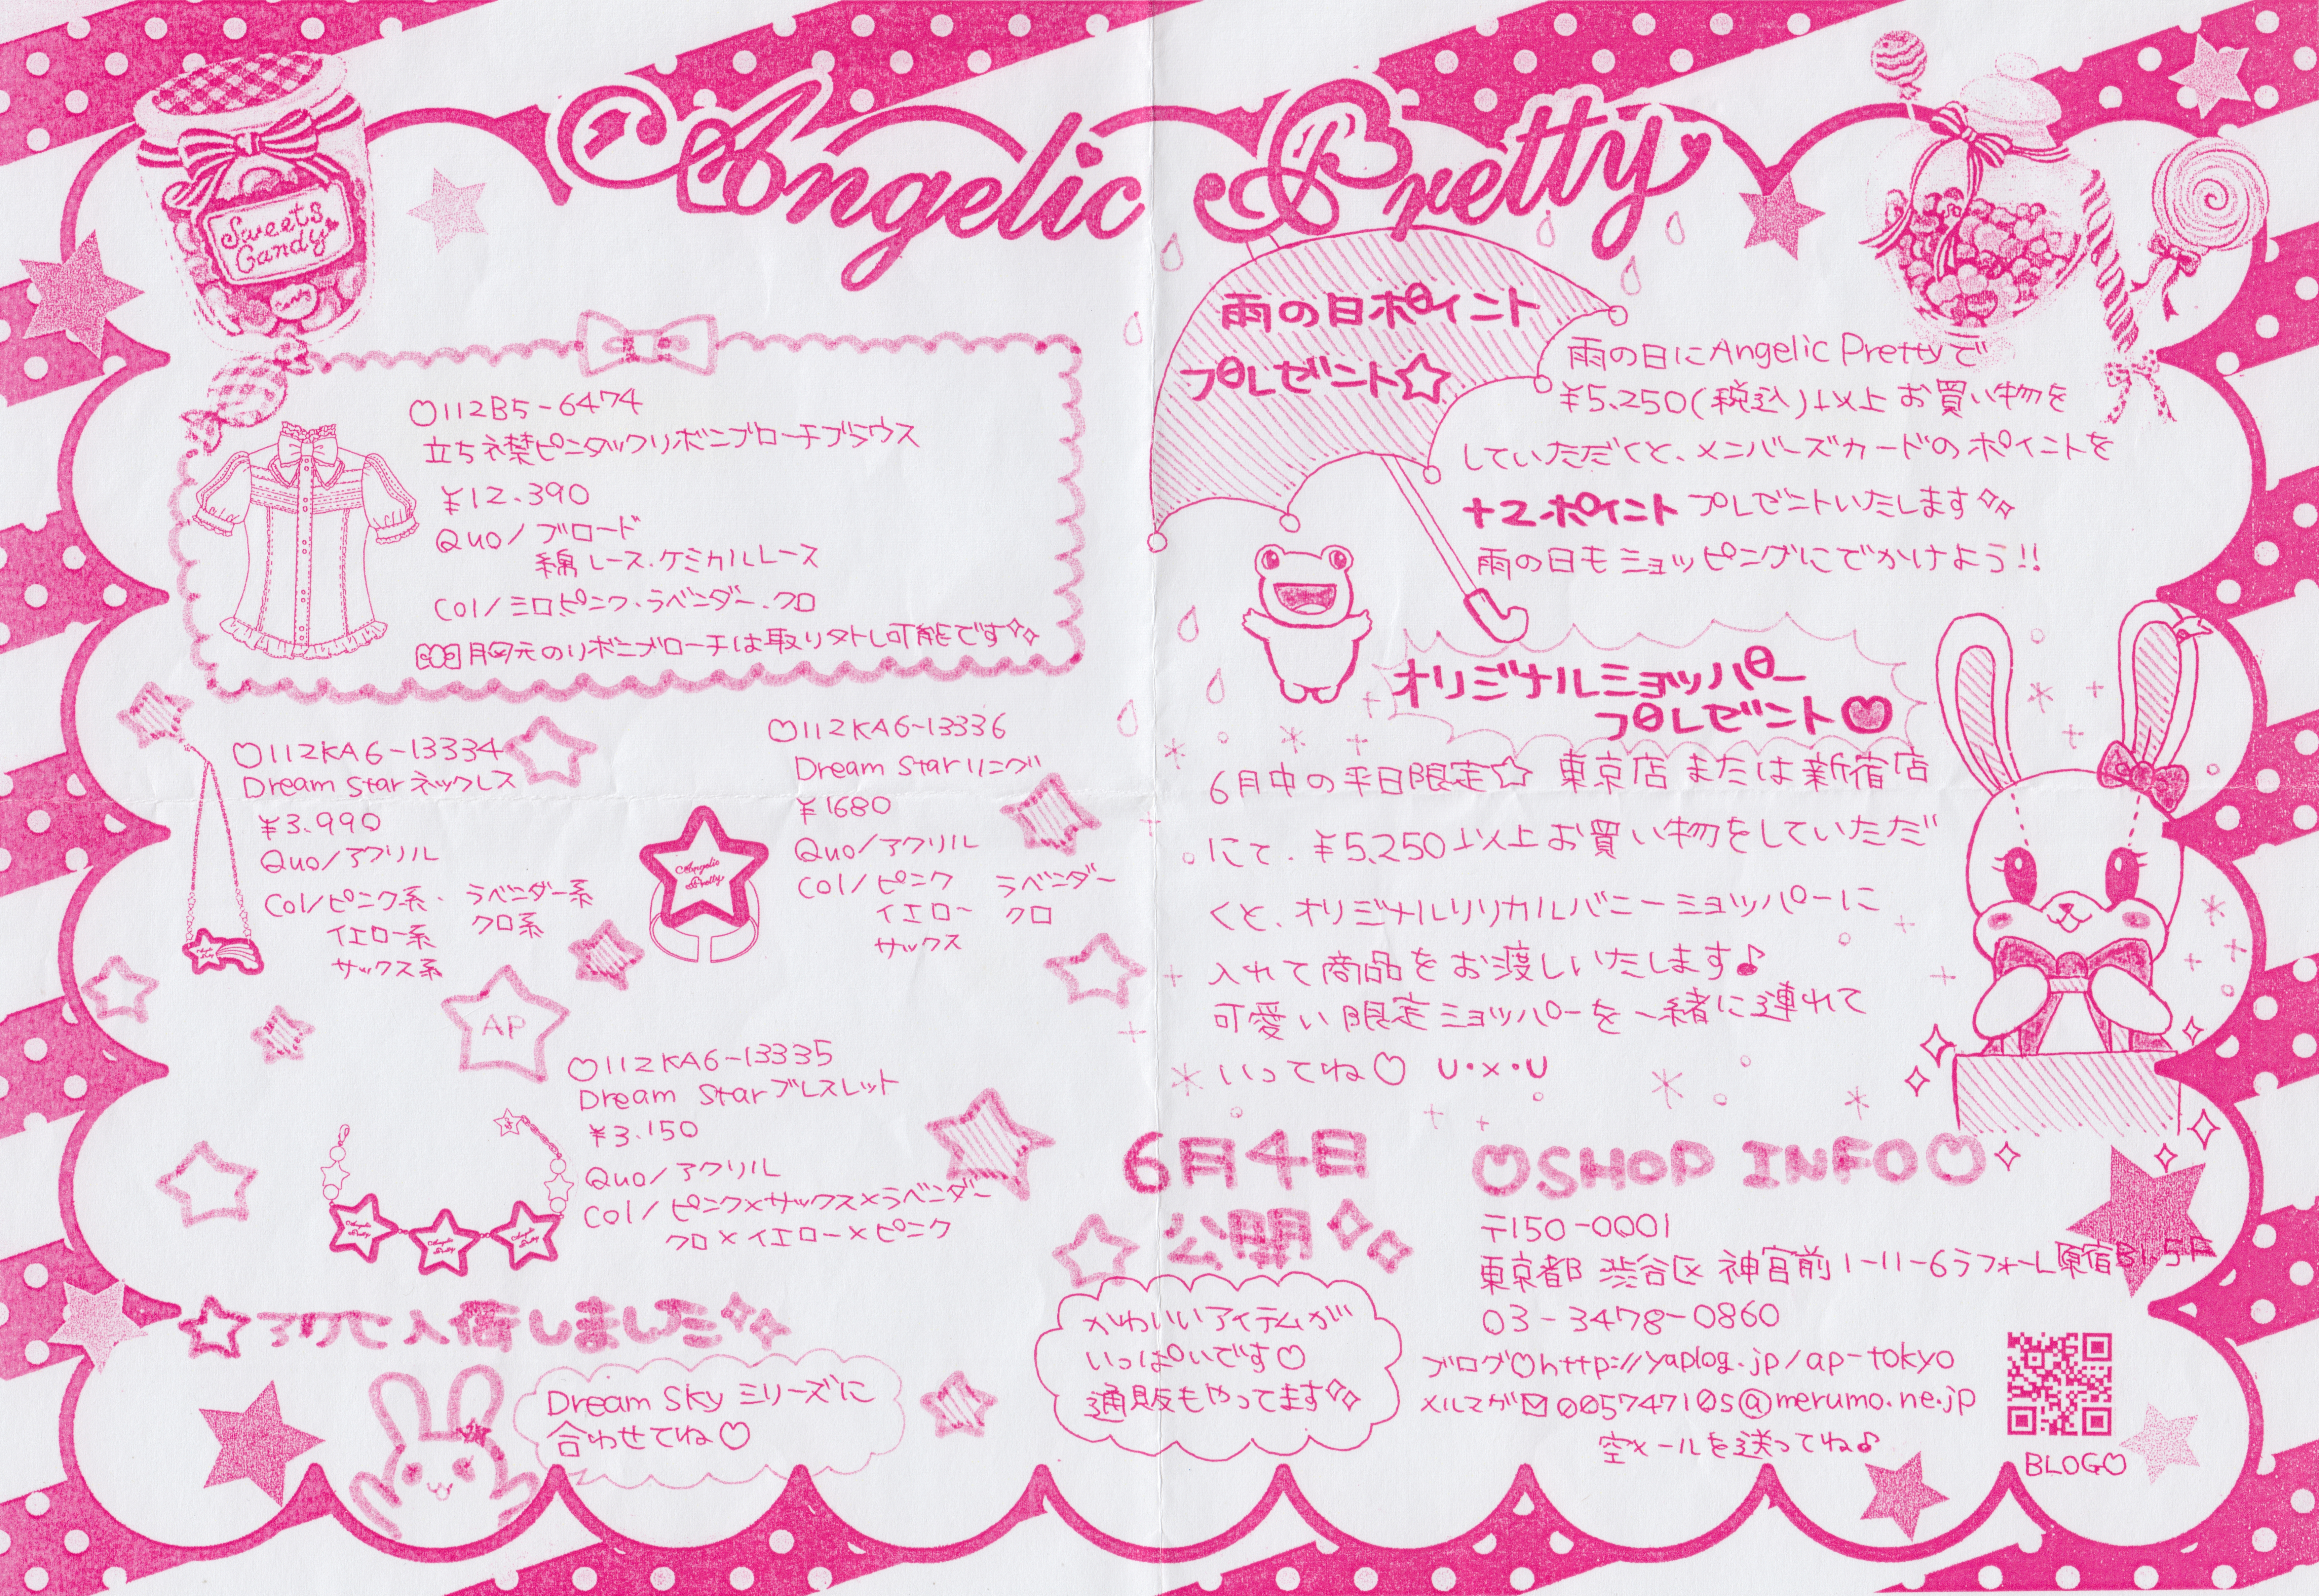 Angelic Pretty
Sweets
Candy
♡112B5-6474
立ち衿ピンタックリボンブローチブラウス
¥12.390
Quo/ブロード
綿レース・ケミカルレース
Col/シロピンク・ラベンダー・クロ
胸元のリボンブローチは取り外し可能です
♡112KA6-13334
Dream Starネックレス
¥3.990
Quo/アクリル
Col/ピンク系・ラベンダー系
イエロー系 クロ系
サックス系
♡112KA6-13336
Dream Starリング
¥1680
Quo/アクリル
Col/ピンク ラベンダー
イエロー クロ
サックス
Angelic
Pretty
AP
♡112KA6-13335
Dream Starブレスレット
¥3.150
Quo/アクリル
Col/ピンク×サックス×ラベンダー
クロ×イエロー×ピンク
Angelic
Pretty
Angelic
Pretty
Angelic
Pretty
☆アクセ入荷しました
Dream Skyシリーズに
合わせてね♡
雨の日ポイント
プレゼント☆
雨の日にAngelic Prettyで
¥5.250(税込)以上お買い物を
していただくと、メンバーズカードのポイントを
+2ポイントプレゼントいたします
雨の日もショッピングにでかけよう!!
オリジナルショッパー
プレゼント♡
6月中の平日限定☆ 東京店または新宿店
にて、¥5,250以上お買い物をしていただ
くと、オリジナルリリカルバニーショッパーに
入れて商品をお渡しいたします♪
可愛い限定ショッパーを一緒に連れて
いってね♡ U・x・U
6月4日
公開
かわいいアイテムが
いっぱいです♡
通販もやってます
♡SHOP INFO♡
〒150-0001
東京都渋谷区神宮前1-11-6ラフォーレ原宿B1.5F
03-3478-0860
ブログ♡http://yaplog.jp/ap-tokyo
メルマガ✉00574710s@merumo.ne.jp
空メールを送ってね♪
BLOG♡